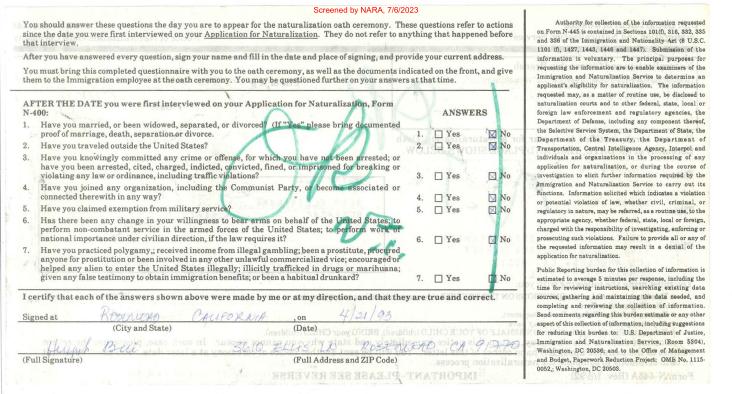 Screened by NARA, 7/6/2023
You should answer these questions the day you are to appear for the naturalization oath ceremony. These questions refer to actions
since the date you were first interviewed on your Application for Naturalization. They do not refer to anything that happened before
that interview.
After you have answered every question, sign your name and fill in the date and place of signing, and provide your current address.
You must bring this completed questionnaire with you to the oath ceremony, as well as the documents indicated on the front, and give
them to the Immigration employee at the oath ceremony. You may be questioned further on your answers at that time.
AFTER THE DATE you were first interviewed on your Application for Naturalization, Form
N-400:
ANSWERS
1. Have you married, or been widowed, separated, or divorced? (If "Yes" please bring documented
proof of marriage, death, separation or divorce.
1. Yes No
2. Have you traveled outside the United States?
2. Yes No
3. Have you knowingly committed any crime or offense, for which you have not been arrested; or
have you been arrested, cited, charged, indicted, convicted, fined, or imprisoned for breaking or
violating any law or ordinance, including traffic violations?
3. Yes No
4. Have you joined any organization, including the Communist Party, or become associated or
connected therewith in any way?
4. Yes No
5. Have you claimed exemption from military service?
5. Yes No
6. Has there been any change in your willingness to bear arms on behalf of the United States; to
perform non-combatant service in the armed forces of the United States; to perform work of
national importance under civilian direction, if the law requires it?
6. Yes No
7. Have you practiced polygamy,; received income from illegal gambling; been a prostitute, procured
anyone for prostitution or been involved in any other unlawful commercialized vice; encouraged or
helped any alien to enter the United States illegally; illicitly trafficked in drugs or marihuana;
given any false testimony to obtain immigration benefits; or been a habitual drunkard?
7. Yes No
OK
I certify that each of the answers shown above were made by me or at my direction, and that they are true and correct.
Signed at ROSEMEAD CALIFORNIA , on 4/21/93
(City and State) (Date)
3610 ELLIS LN. ROSEMEAD CA. 91770
(Full Signature) (Full Address and ZIP Code)
IMPORTANT-PLEASE SEE REVERSE
Authority for collection of the information requested
on Form N-445 is contained in Sections 101(f), 316, 332, 335
and 336 of the Immigration and Nationality Act (8 U.S.C.
1101 (f), 1427, 1443, 1446 and 1447). Submission of the
information is voluntary. The principal purposes for
requesting the information are to enable examiners of the
Immigration and Naturalization Service to determine an
applicant's eligibility for naturalization. The information
requested may, as a matter of routine use, be disclosed to
naturalization courts and to other federal, state, local or
foreign law enforcement and regulatory agencies, the
Department of Defense, including any component thereof,
the Selective Service System, the Department of State, the
Department of the Treasury, the Department of
Transportation, Central Intelligence Agency, Interpol and
individuals and organizations in the processing of any
application for naturalization, or during the course of
investigation to elicit further information required by the
Immigration and Naturalization Service to carry out its
functions. Information solicited which indicates a violation
or potential violation of law, whether civil, criminal, or
regulatory in nature, may be referred, as a routine use, to the
appropriate agency, whether federal, state, local or foreign,
charged with the responsibility of investigating, enforcing or
prosecuting such violations. Failure to provide all or any of
the requested information may result in a denial of the
application for naturalization.
Public Reporting burden for this collection of information is
estimated to average 5 minutes per response, including the
time for reviewing instructions, searching existing data
sources, gathering and maintaining the data needed, and
completing and reviewing the collection of information.
Send comments regarding this burden estimate or any other
aspect of this collection of information, including suggestions
for reducing this burden to: U.S. Department of Justice,
Immigration and Naturalization Service, (Room 5304),
Washington, DC 20536; and to the Office of Management
and Budget, Paperwork Reduction Project: OMB No. 1115-
0052,; Washington, DC 20503.